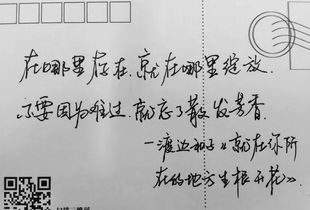 在哪里存在，就在哪里绽放。
不要因为难过，就忘了散发芳香。
—渡边和子《就在你所
在的地方生根开花》。